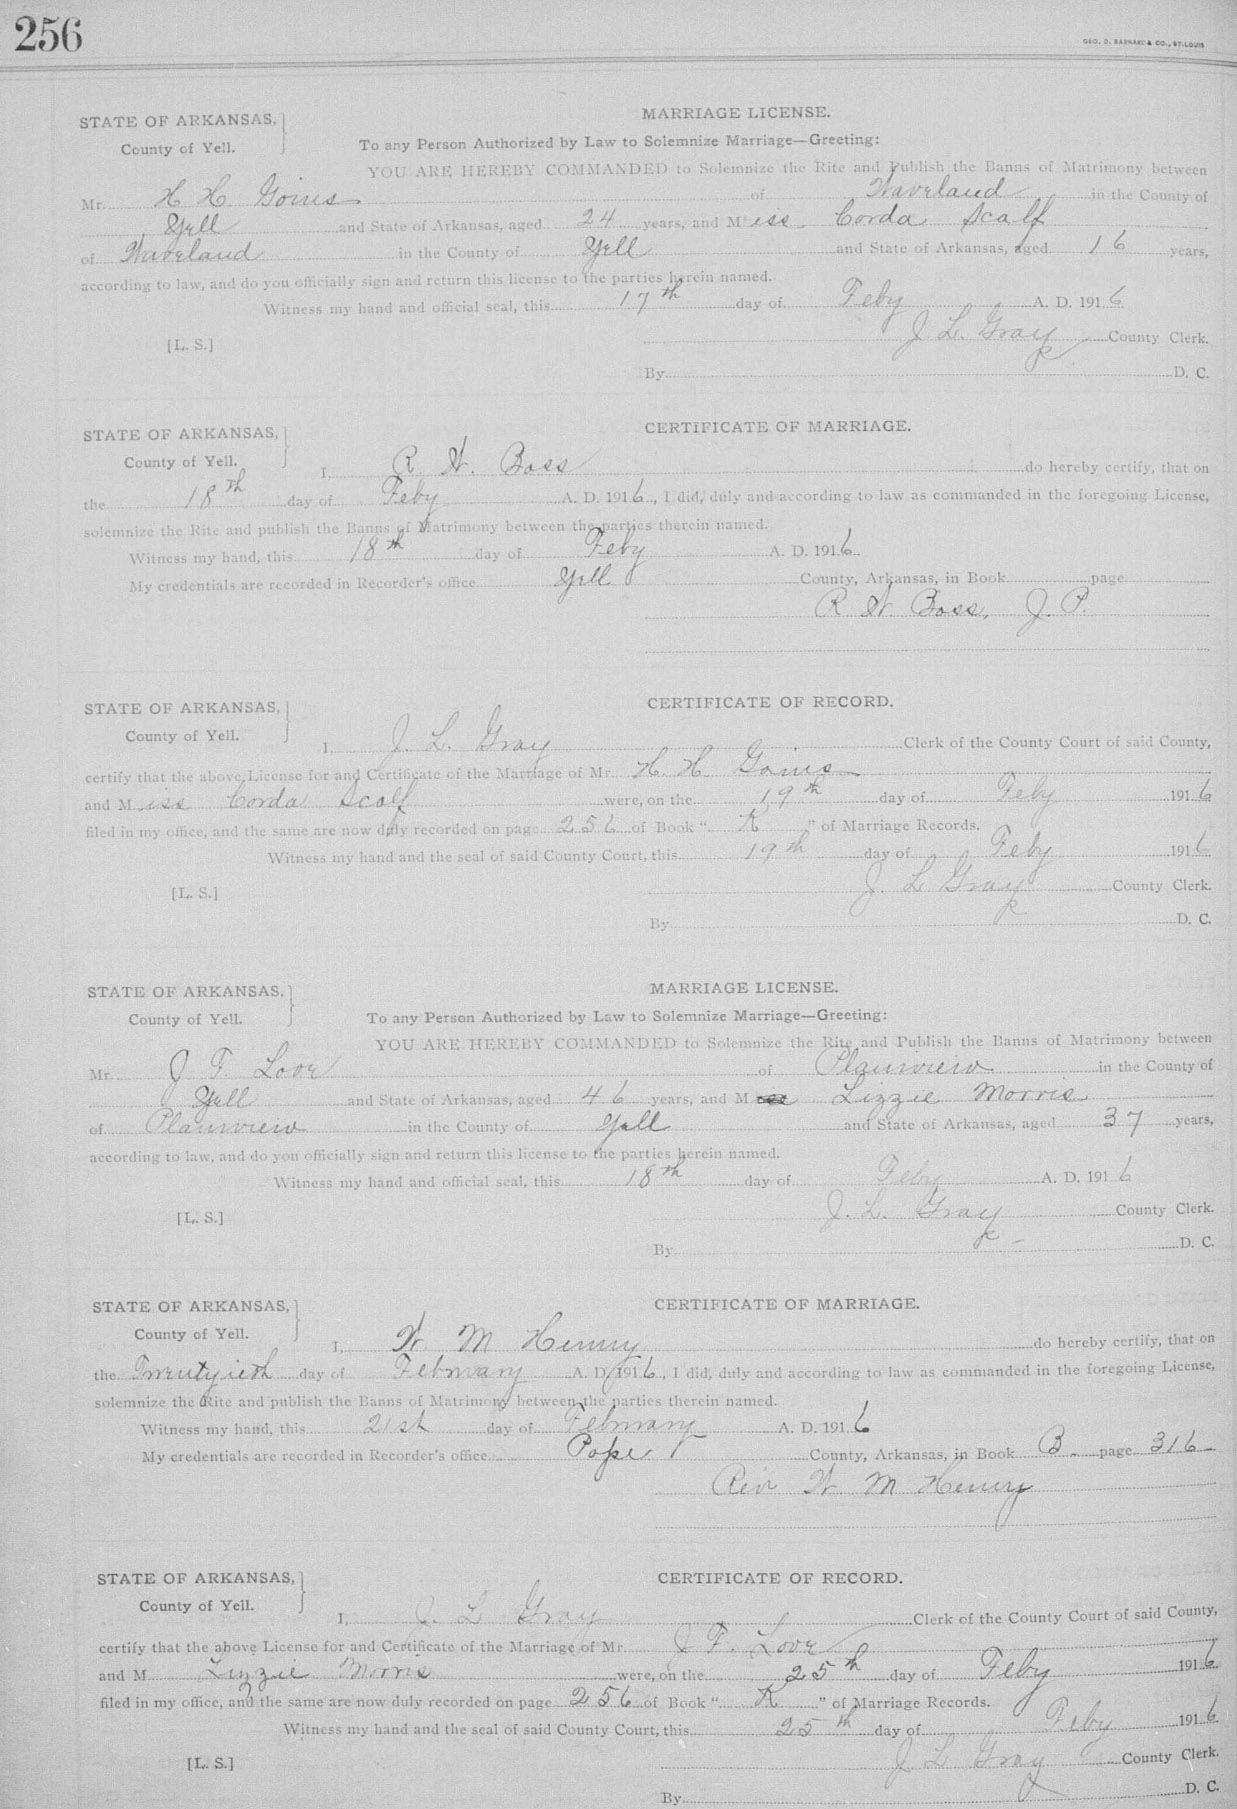 256
GEO. D. BARNARD & CO., ST. LOUIS
STATE OF ARKANSAS, MARRIAGE LICENSE.
County of Yell. To any Person Authorized by Law to Solemnize Marriage—Greeting:
YOU ARE HEREBY COMMANDED to Solemnize the Rite and Publish the Banns of Matrimony between
Mr. H H. Goins of Waveland in the County of
Yell and State of Arkansas, aged 24 years, and Miss Corda Scalf
of Waveland in the County of Yell and State of Arkansas, aged 16 years,
according to law, and do you officially sign and return this license to the parties herein named.
Witness my hand and official seal, this 17th day of Feby A. D. 1916
[L. S.] J L. Gray County Clerk.
By D. C.
STATE OF ARKANSAS, CERTIFICATE OF MARRIAGE.
County of Yell. I, R W. Boss do hereby certify, that on
the 18th day of Feby A. D. 1916, I did, duly and according to law as commanded in the foregoing License,
solemnize the Rite and publish the Banns of Matrimony between the parties therein named.
Witness my hand, this 18th day of Feby A. D. 1916
My credentials are recorded in Recorder's office Yell County, Arkansas, in Book page
R W. Boss, J. P.
STATE OF ARKANSAS, CERTIFICATE OF RECORD.
County of Yell. I, J. L. Gray Clerk of the County Court of said County,
certify that the above License for and Certificate of the Marriage of Mr. H. H. Goins
and Miss Corda Scalf were, on the 19th day of Feby 1916
filed in my office, and the same are now duly recorded on page 256 of Book "K" of Marriage Records.
Witness my hand and the seal of said County Court, this 19th day of Feby 1916
[L. S.] J. L Gray County Clerk.
By D. C.
STATE OF ARKANSAS, MARRIAGE LICENSE.
County of Yell. To any Person Authorized by Law to Solemnize Marriage—Greeting:
YOU ARE HEREBY COMMANDED to Solemnize the Rite and Publish the Banns of Matrimony between
Mr. J F. Love of Plainview in the County of
Yell and State of Arkansas, aged 46 years, and M iss Lizzie Morris
of Plainview in the County of Yell and State of Arkansas, aged 37 years,
according to law, and do you officially sign and return this license to the parties herein named.
Witness my hand and official seal, this 18th day of Feby A. D. 1916
[L. S.] J. L. Gray County Clerk.
By D. C.
STATE OF ARKANSAS, CERTIFICATE OF MARRIAGE.
County of Yell. I, W. M Henry do hereby certify, that on
the Twentyieth day of February A. D. 1916, I did, duly and according to law as commanded in the foregoing License,
solemnize the Rite and publish the Banns of Matrimony between the parties therein named.
Witness my hand, this 21st day of February A. D. 1916
My credentials are recorded in Recorder's office Pope County, Arkansas, in Book B page 316
Rev W. M Henry
STATE OF ARKANSAS, CERTIFICATE OF RECORD.
County of Yell. I, J. L Gray Clerk of the County Court of said County,
certify that the above License for and Certificate of the Marriage of Mr. J F. Love
and M Lizzie Morris were, on the 25th day of Feby 1916
filed in my office, and the same are now duly recorded on page 256 of Book "K" of Marriage Records.
Witness my hand and the seal of said County Court, this 25th day of Feby 1916
[L. S.] J L Gray County Clerk.
By D. C.